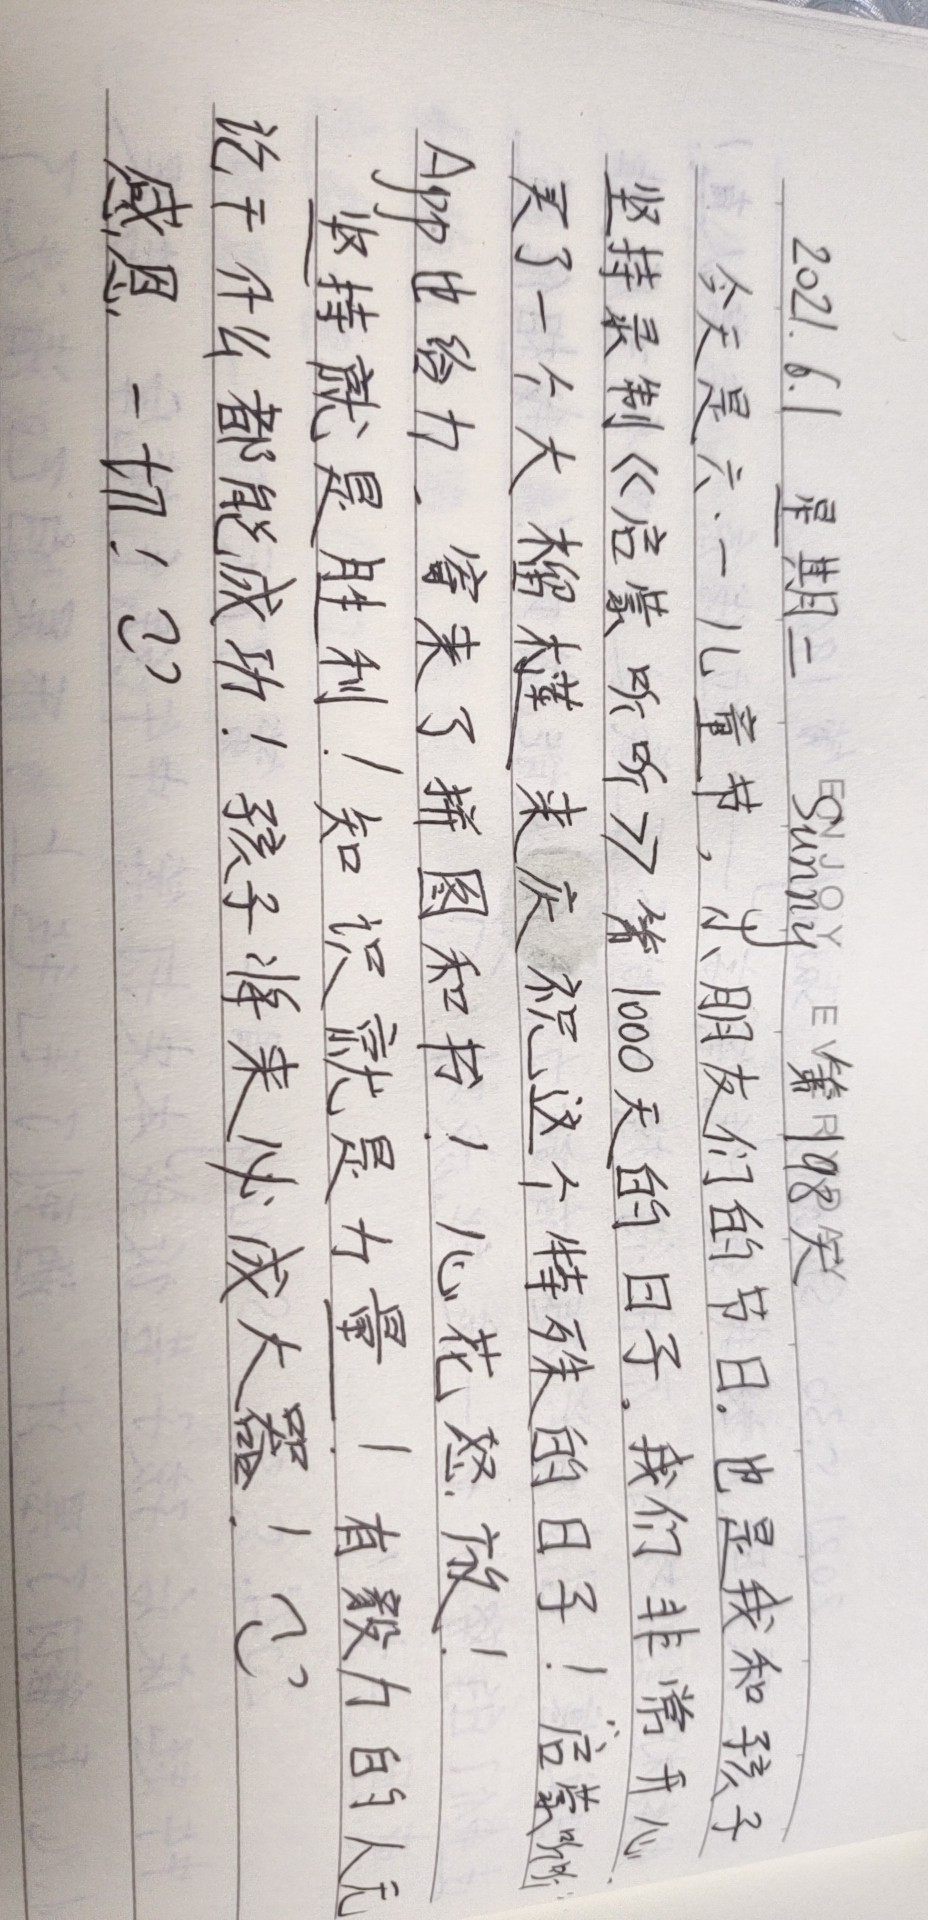 2021.6.1 星期二 Sunny 第198天
ENJOY EVER
今天是六一儿童节,小朋友们的节日.也是我和孩子
坚持录制《启蒙听听》第1000天的日子.我们非常开心
买了一个大榴梿来庆祝这个特殊的日子!启蒙听听
App也给力.寄来了拼图和书!心花怒放!
坚持就是胜利!知识就是力量!有毅力的人无
论干什么都能成功!孩子将来必成大器!
感恩一切!